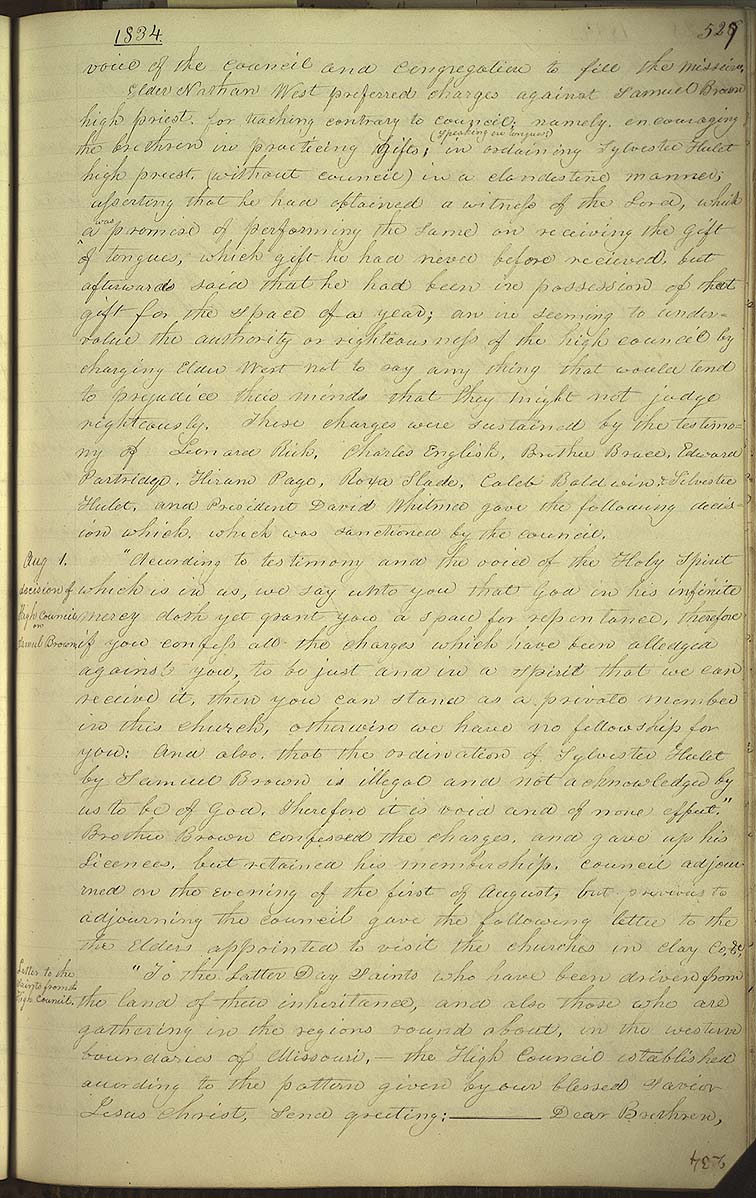 1834.
529
voice of the council and congregation to fill the mission,
Elder Nathan West preferred charges against Samuel Brown
high priest. for teaching contrary to council; namely. encouraging
the brethren in practicing gifts; (speaking in tongues) in ordaining Sylvester Hulet
high priest (without council) in a clandestine manner;
asserting that he had obtained a witness of the Lord, which
was a promise of performing the same on receiving the gift
of tongues, which gift he had never before received, but
afterwards said that he had been in possession of that
gift for the space of a year; an in seeming to under=
value the authority or righteousness of the high council by
charging Elder West not to say any thing that would tend
to prejudice their minds that they might not judge
righteously. These charges were sustained by the testimo-
ny of Leonard Rich, Charles English, Brother Brace, Edward
Partridge, Hiram Page, Roxa Slade, Caleb Baldwin & Silvester
Hulet, and President David Whitmer gave the following decis-
ion which, which was sanctioned by the council.
Aug 1.
decision of
High Council
on
Samuel Brown
"Acording to testimony and the voice of the Holy Spirit
which is in us, we say unto you that God in his infinite
mercy doth yet grant you a space for repentance, therefore
if you confess all the charges which have been alledged
against you, to be just and in a spirit that we can
receive it, then you can stand as a private member
in this church, otherwise we have no fellowship for
you: And also. that the ordination of Sylvester Hulet
by Samuel Brown is illegal and not acknowledged by
us to be of God. Therefore it is void and of none effect."
Brother Brown confessed the charges, and gave up his
Licences, but retained his membership. Council adjour
ned on the evening of the first of August, but previous to
adjourning the council gave the following letter to the
the Elders appointed to visit the churches in clay Co, &c,
Letter to the
Saints from the
High Council.
"To the Latter Day Saints who have been driven from
the land of their inheritance, and also those who are
gathering in the regions round about, in the western
boundaries of Missouri,— the High Council established
acording to the pattern given by our blessed Savior
Jesus Christ, Send greeting:——— Dear Brethren,
234